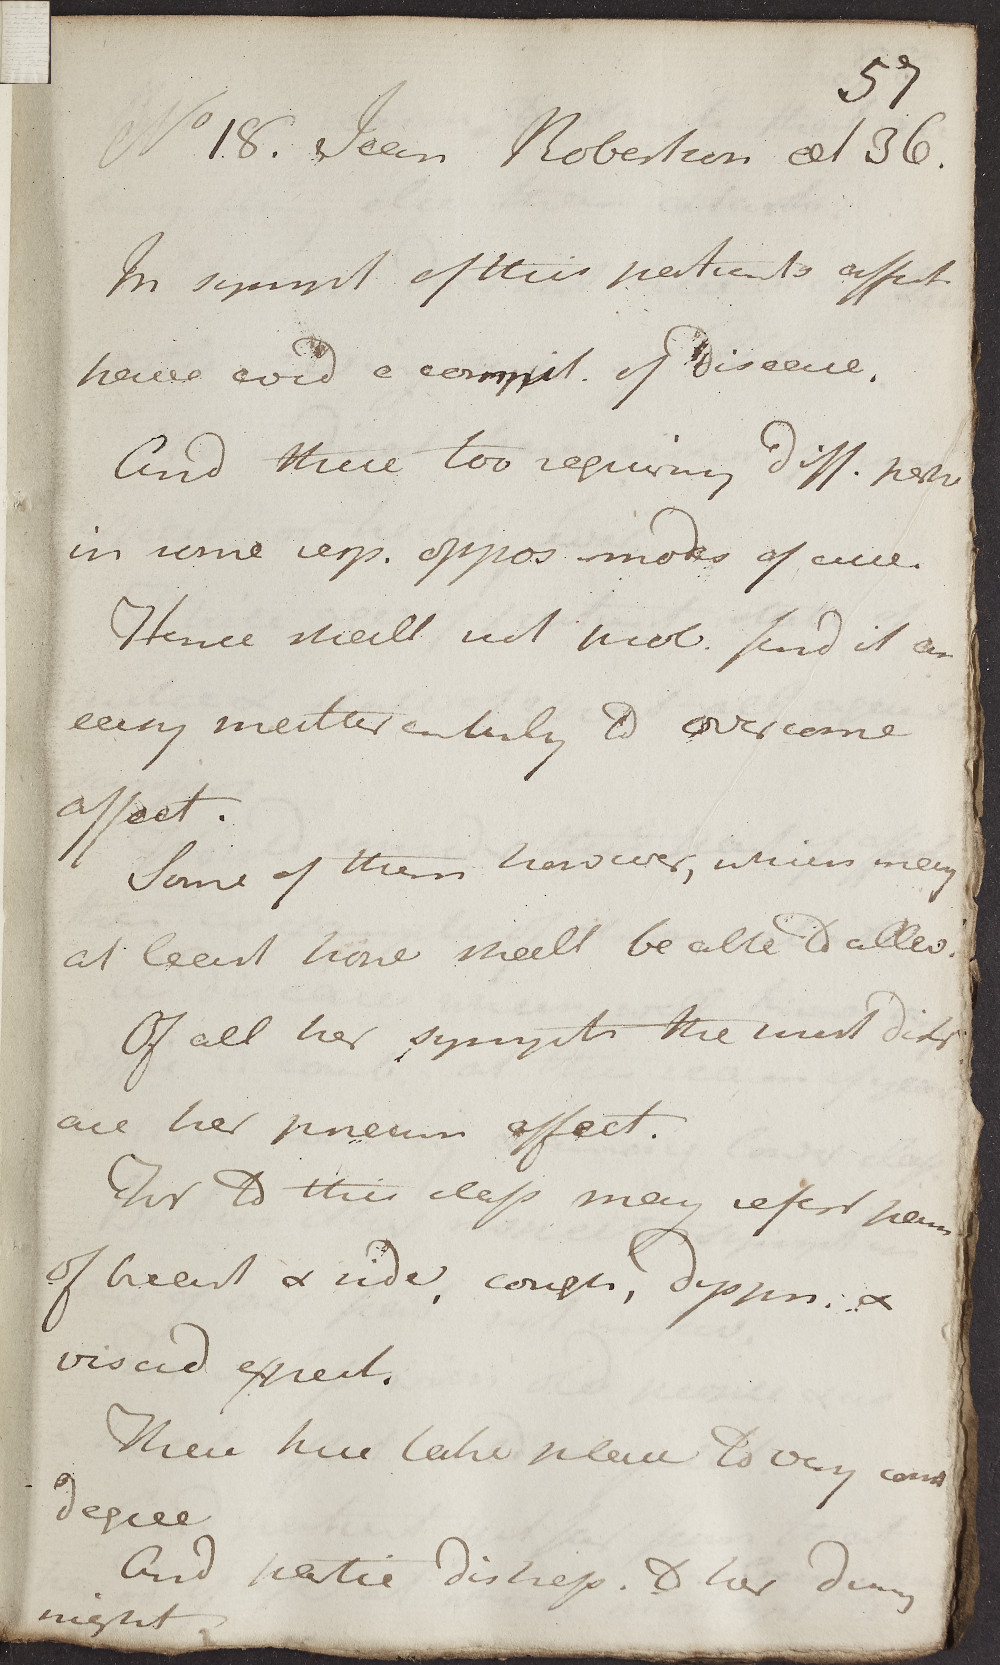 57
No 18. Jean Robertson æt 36.
In sympt of this patients affect
have evid a compl. of Disease.
And these too requiring diff. perh
in some resp. oppos modes of cure.
Hence shall not prob. find it an
easy matter entirely to overcome
affect.
Some of them however, which may
at least hope shall be able to allev.
Of all her sympts the most distr
are her pneum affect.
For to this class may refer pain
of breast & side, cough, dyspn. &
viscid expect.
These here take place to very cons
degree
And partic distress. to her during
night